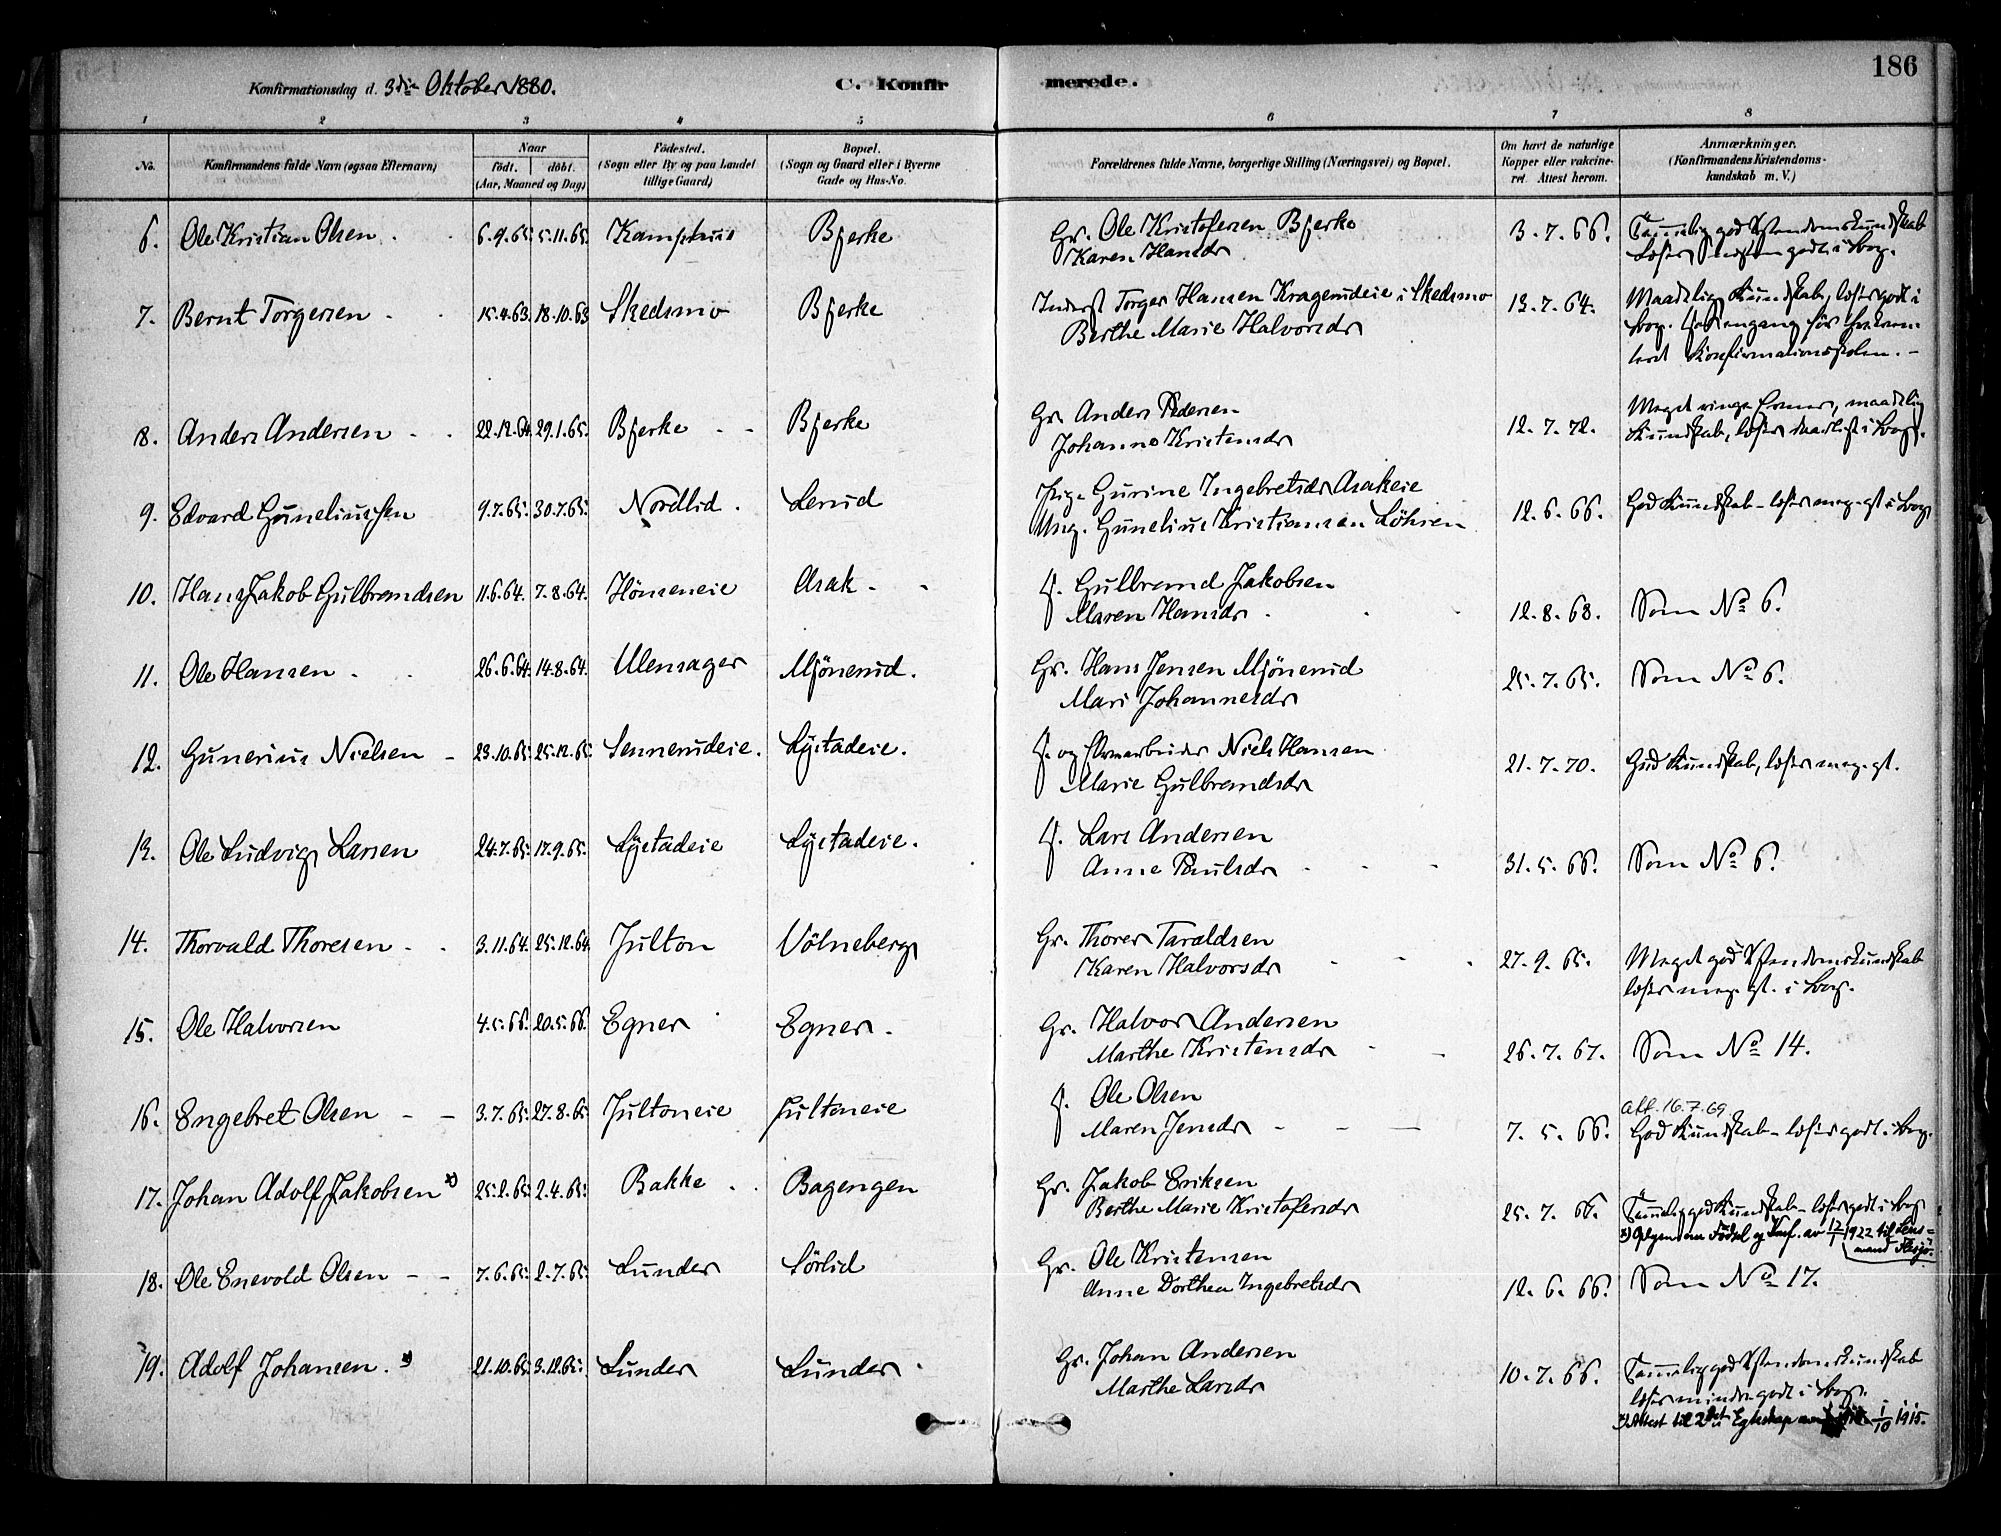 186
Konfirmationsdag d. 3die Oktober 1880.
C. Konfirmerede.
1 2 3 4 5 6 7 8
No.
Konfirmandens fulde Navn (ogsaa Efternavn)
Naar
født. døbt.
(Aar, Maaned og Dag)
Fødested.
(Sogn eller By og paa Landet
tillige Gaard)
Bopæl.
(Sogn og Gaard eller i Byerne
Gade og Hus-No.
Forældrenes fulde Navne, borgerlige Stilling (Næringsvei) og Bopæl.
Om havt de naturlige
Kopper eller vakcine-
ret. Attest herom.
Anmærkninger.
(Konfirmandens Kristendoms-
kundskab m. V.)
6. Ole Kristian Olsen 6.9.65. 5.11.65. Kamphus Bjerke Gr. Ole Kristofersen Bjerke 3.7.66. Temmelig god Xstendomskundskab
Karen Hansdr læser godt i Bog.
7. Bernt Torgersen 15.4.63. 18.10.63 Skedsmo Bjerke Inderst Torger Hansen Kragerudeie i Skedsmo 13.7.64. Maadelig Kundskab, læser godt i
Berthe Marie Halvorsdr Bog. engang før
Konfirmationsskolen. -
8. Anders Andersen 22.12.64. 29.1.65. Bjerke Bjerke Gr. Anders Pedersen 12.7.72. Meget ringe Evner, maadelig
Johanne Kristensdr Kundskab, læser daarligt i Bog.
9. Edvard Guneliussen 9.7.65. 30.7.65. Nordlid. Lerud Pige Gurine Ingebretsdr Asakeie 12.6.66. God Kundskab - læser meg. gt i Bog
Ung. Gunelius Kristiansen Löhren
10. Hans Jakob Gulbrandsen 11.6.64. 7.8.64. Hönseneie Asak F. Gulbrand Jakobsen 12.8.68. Som No 6.
Maren Hansdr
11. Ole Hansen 26.6.64. 14.8.64. Ulensager Mjönerud. Gr. Hans Jensen Mjönerud 25.7.65. Som No 6.
Mari Johannesdr
12. Gunerius Nielsen 23.10.65. 25.12.65. Sennerudeie. Lystadeie. F. og Niels Hansen 21.7.70. God Kundskab, læser meg. gt.
Marie Gulbrandsdr
13. Ole Ludvig Larsen 24.7.65. 17.9.65. Lystadeie Lystadeie. F. Lars Andersen 31.5.66. Som No 6.
Anne Paulsdr
14. Thorvald Thoresen 3.11.64. 25.12.64. Julton Völneberg Gr. Thorer Taraldsen 27.9.65. Meget god Xstendomskundskab
Karen Halvorsdr læser meg. gt. i Bog.
15. Ole Halvorsen 4.5.66. 20.5.66. Egner Egner. Gr. Halvor Andersen 26.7.67. Som No 14.
Marthe Kristensdr
16. Engebret Olsen 3.7.65. 27.8.65. Jultoneie Jultoneie F. Ole Olsen 7.5.66. att. 16.7.69.
Maren Jensdr God Kundskab - læser godt i Bog.
17. Johan Adolf Jakobsen x) 25.2.65. 2.4.65. Bakke Bagengen Gr. Jakob Eriksen 25.7.66. Temmelig god Kundskab - læser godt i Bog
Berthe Marie Kristofersdr x) Opgave om Födsel og Konf. av 17/7 1922 til Lens-
mand
18. Ole Enevold Olsen 7.6.65. 2.7.65. Lunder Sörlid Gr. Ole Kristensen 12.6.66. Som No 17.
Anne Dorthea Ingebretsdr
19. Adolf Johansen. x) 21.10.65. 3.12.65. Lunder Lunder. Gr. Johan Andersen 10.7.66. Temmelig god Xstendomskundskab
Marthe Larsdr læser mindre godt i Bog.
x) Attest til 2det Egteskap 1/10 1915.